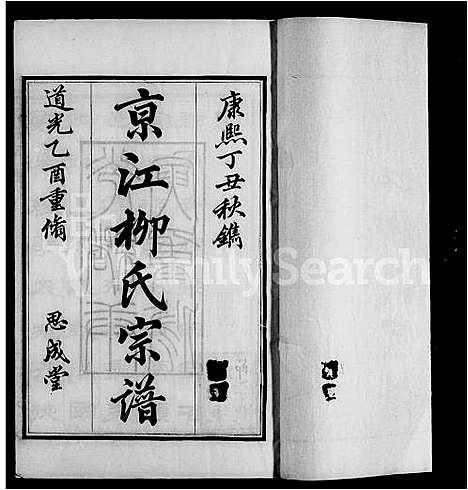 康熙丁丑秋鐫
京江柳氏宗譜
道光乙酉重脩
思成堂
FamilySearch